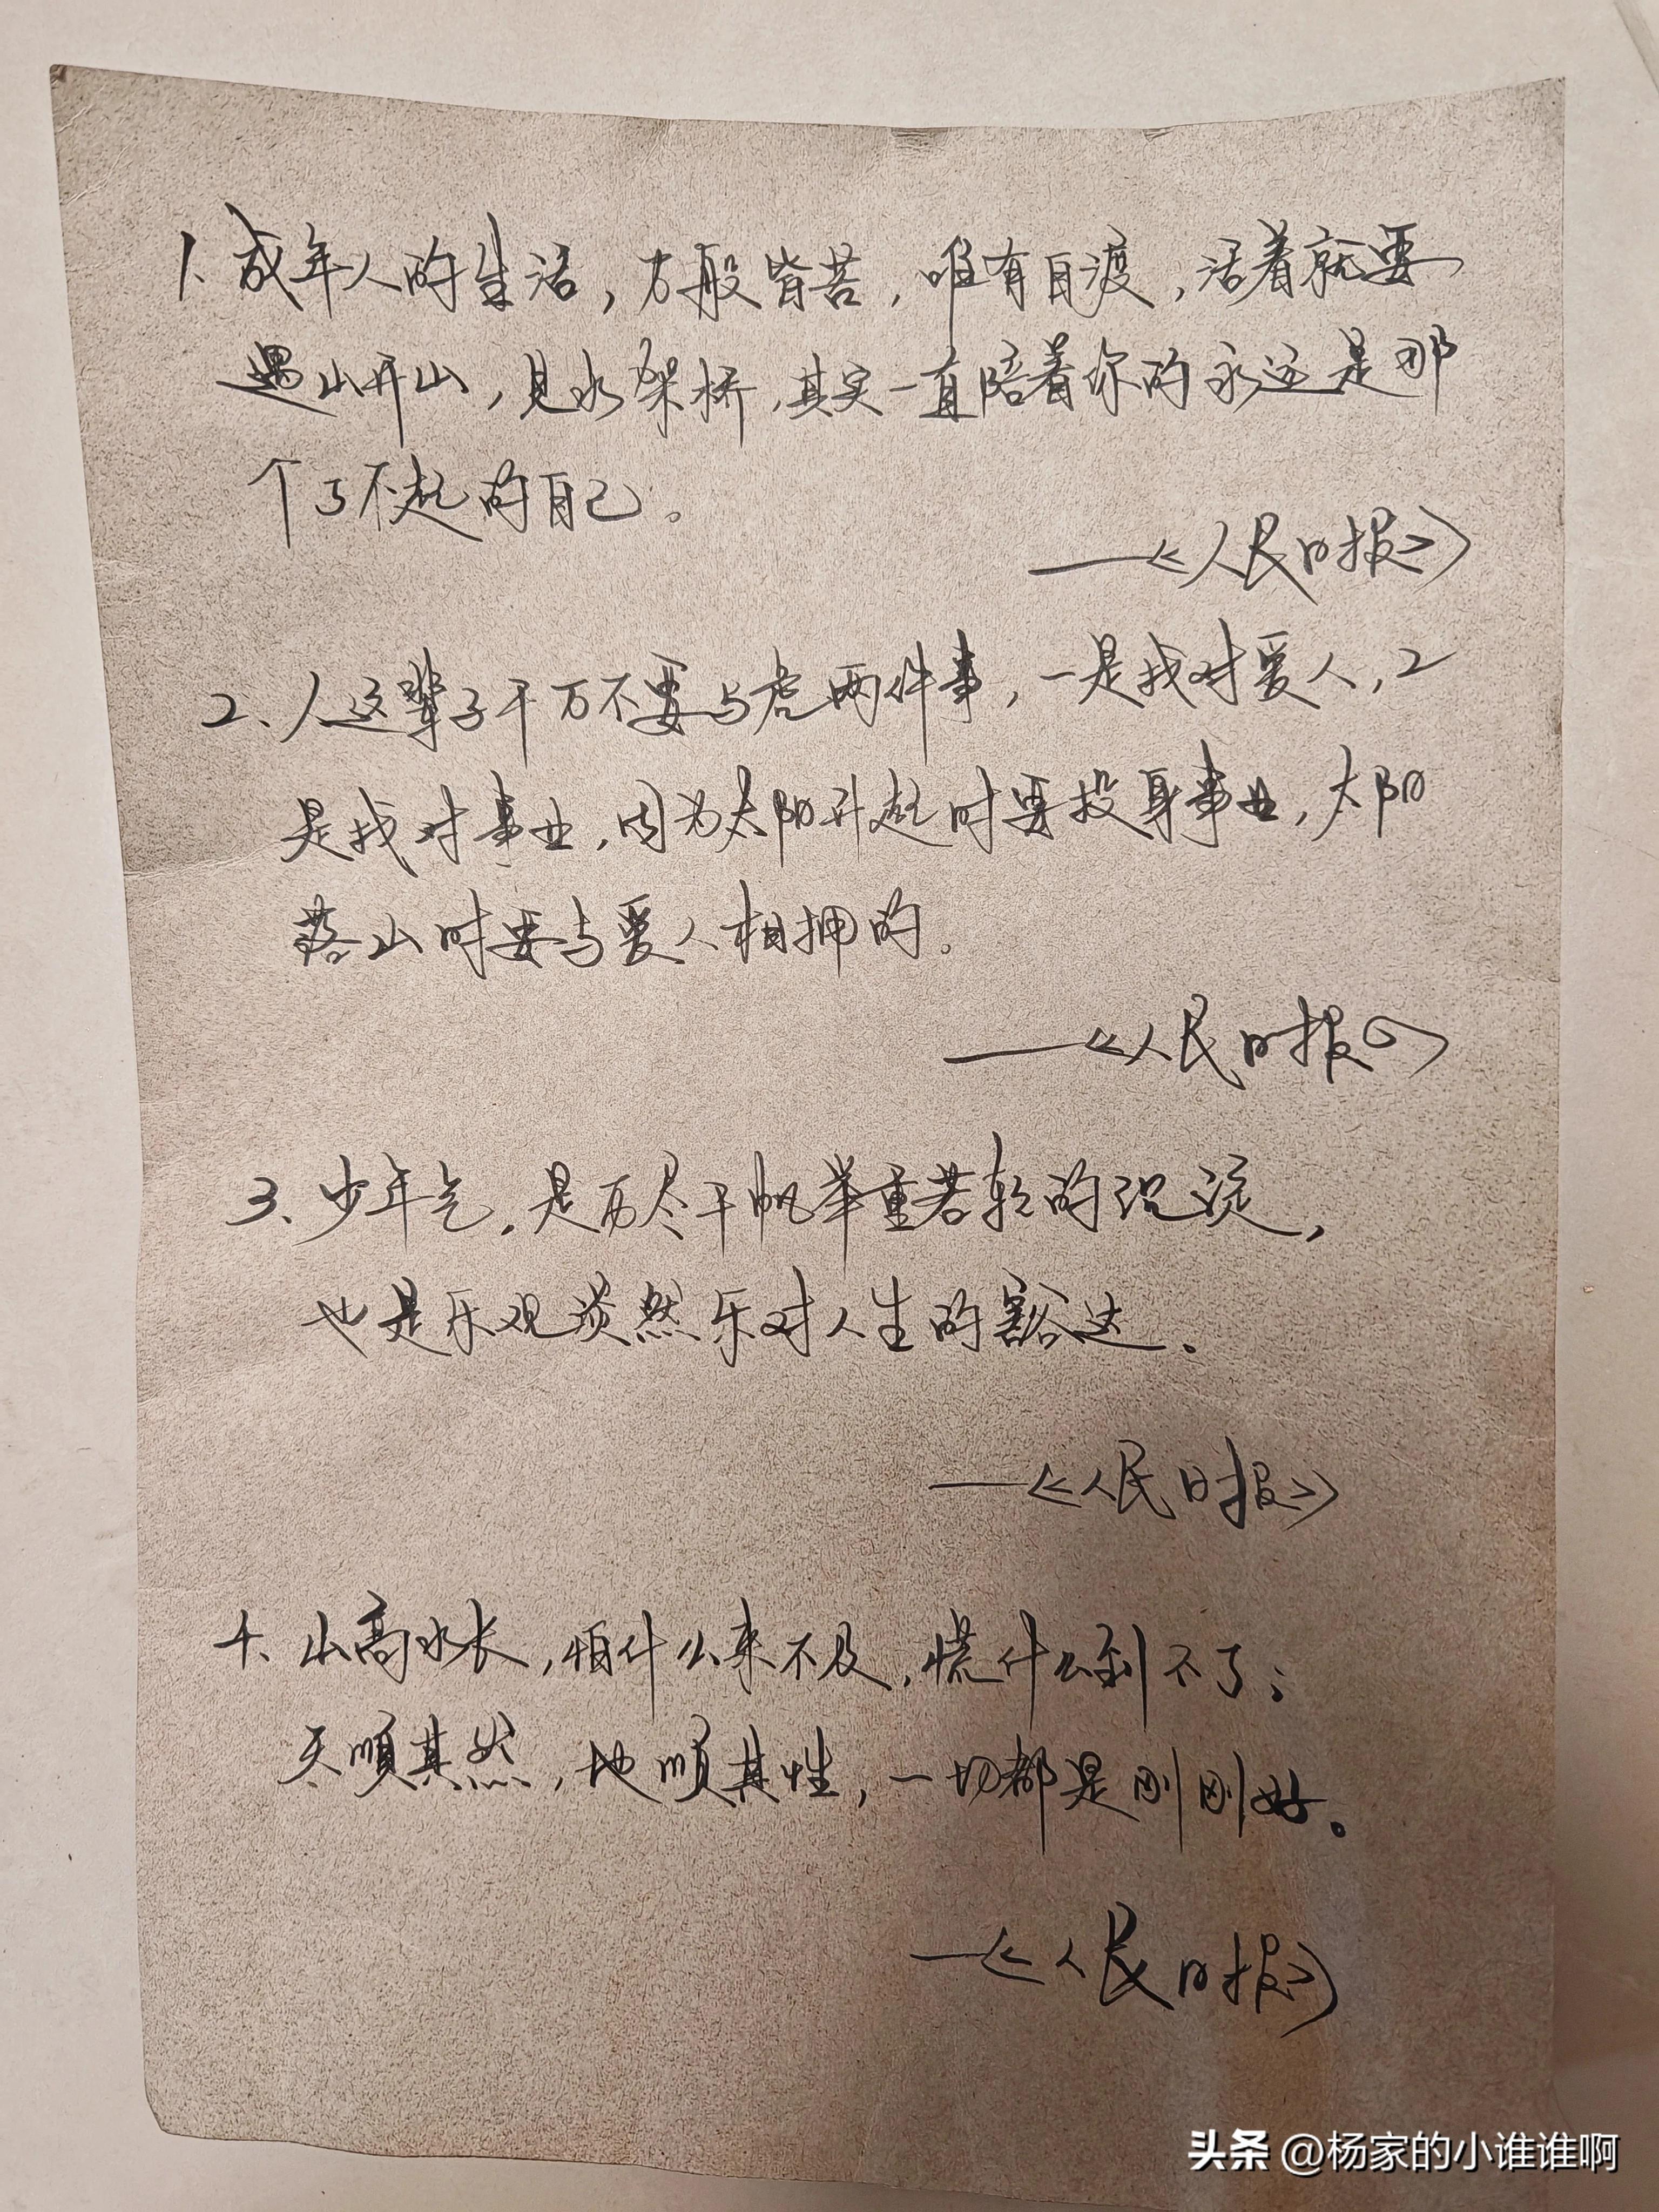 1、成年人的生活，万般皆苦，唯有自渡，活着就要
遇山开山，见水架桥，其实一直陪着你的永远是那
个了不起的自己。
——《人民日报》
2、人这辈子千万不要马虎两件事，一是找对爱人，2
是找对事业，因为太阳升起时要投身事业，太阳
落山时要与爱人相拥的。
——《人民日报》
3、少年气，是历尽千帆举重若轻的沉淀，
也是乐观淡然乐对人生的豁达。
——《人民日报》
4、山高水长，怕什么来不及，慌什么到不了；
天顺其然，地顺其性，一切都是刚刚好。
——《人民日报》
头条 @杨家的小谁谁啊